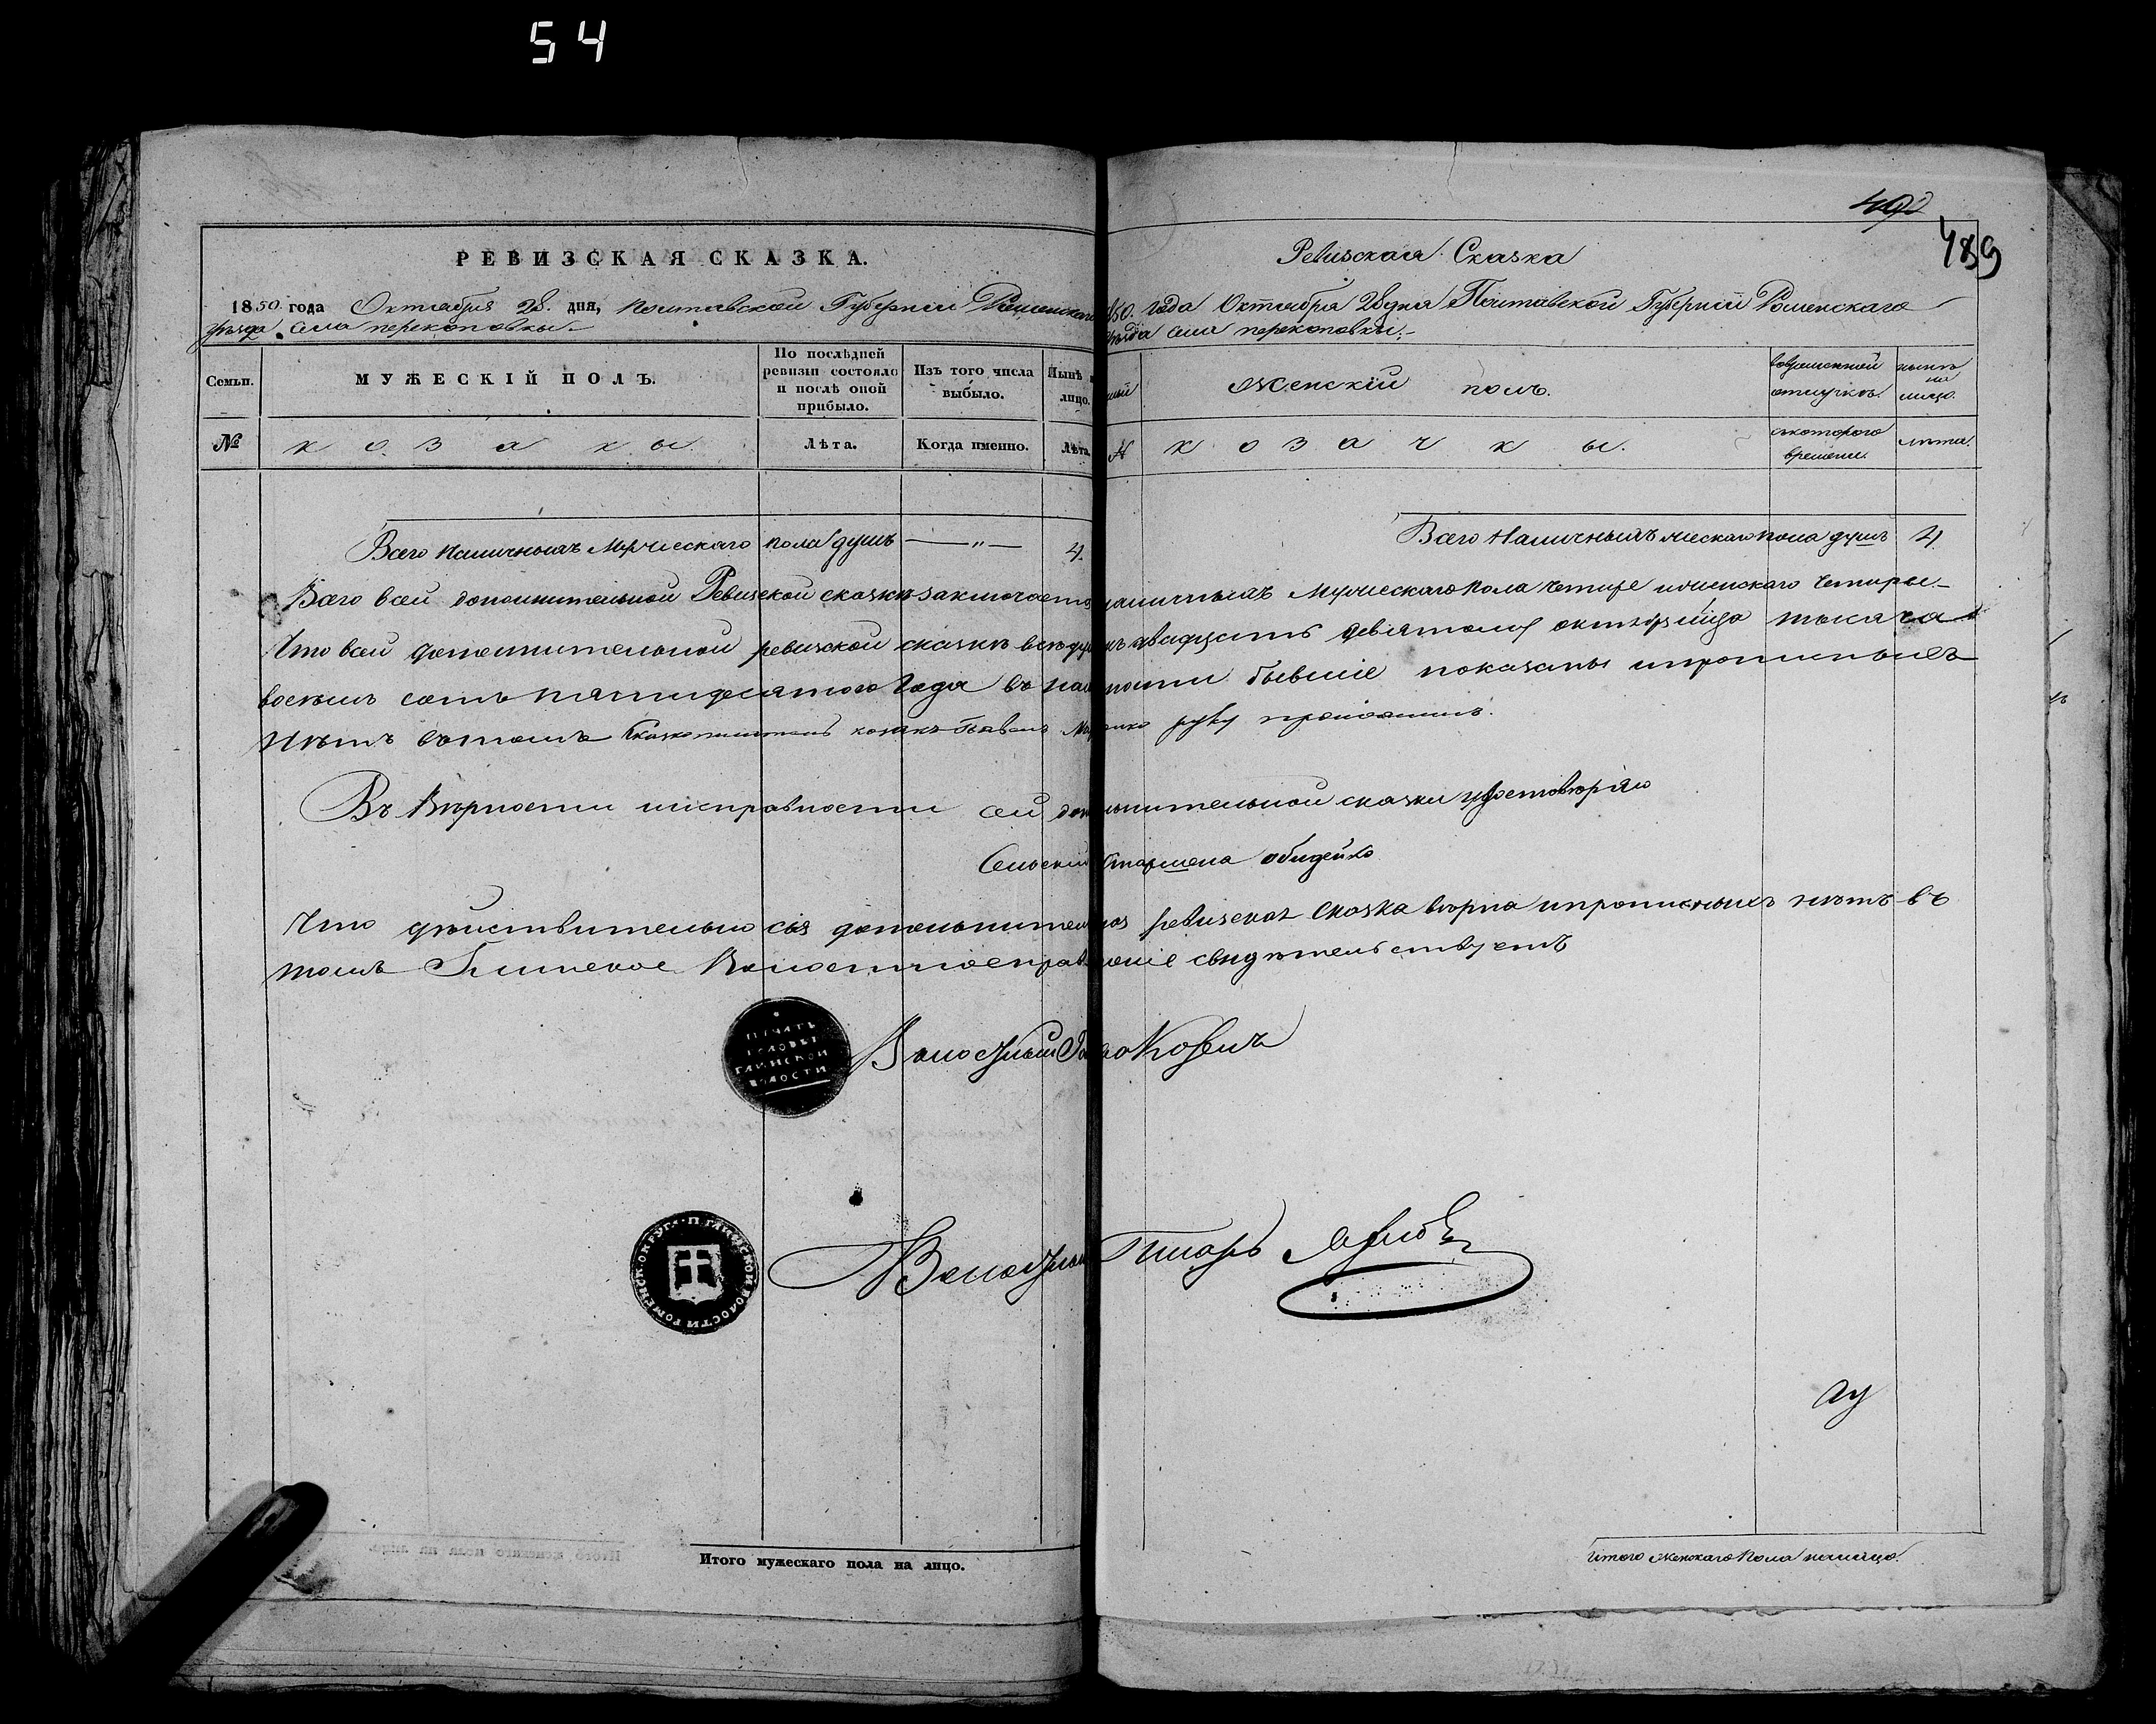 54
490
489
РЕВИЗСКАЯ СКАЗКА.
1850 года Октября 28. дня, Полтавской Губерніи Роменскаго
уѣзда села перекоповки.
Семьи.
МУЖЕСКІЙ ПОЛЪ.
По послѣдней ревизіи состояло и послѣ оной прибыло.
Изъ того числа выбыло.
Нынѣ
лицо.
№
козаки.
Лѣта.
Когда именно.
Лѣта.
Всего наличныхъ Мужескаго пола душъ — „ — 4.
Ревизская Сказка
года Октября 28 дня Полтавской Губерніи Роменскаго
села перекоповки.
женскій полъ.
вовременной отлучкѣ.
нынѣ на лицо.
козачки.
съкоторого времени.
лѣта.
Всего Наличныхъ женскаго пола душъ 4
Всего всей дополнительной Ревизской сказки заключается наличныхъ Мужескаго пола четыре иженскаго четыре.
Что всей дополнительной ревизской сказкѣ всѣ двадцать октября тысяча
восемъ сотъ пятидесятого Года въ бывшіе показаны ипрописныхъ
Нѣтъ вътомъ Сказкоподатель козакъ руку приложилъ.
Въ Вѣрности иисправности сей дополнительной сказки удостовѣряю
Сельскій Старшена обидейко
Что дѣйствительно сія дополнительная ревизская Сказка вѣрна ипрописныхъ нѣтъ въ
томъ Глинское Волостноеправленіе свидѣтельствуетъ
ПЕЧАТЬ
ГОЛОВЫ
ГЛИНСКОЙ
ВОЛОСТИ
Волостный
Волостный Писарь
РОМЕНСК. ОКРУГА П. ГЛИНСКОЙ ВОЛОСТИ
Итого мужескаго пола на лицо.
Итого женскаго пола налицо.